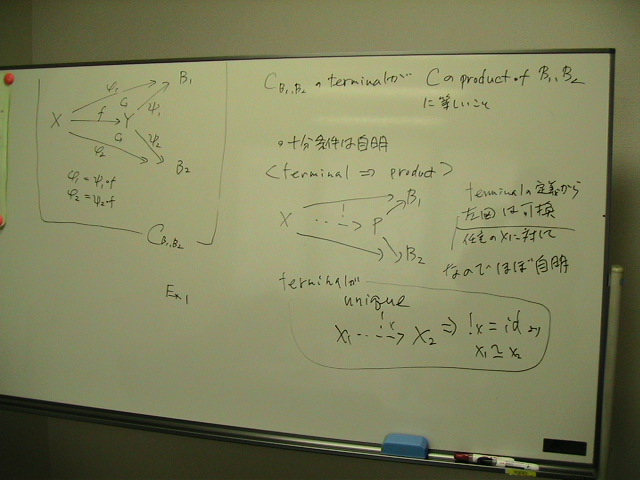 φ1 B1
X f Y ψ1
φ2 ψ2
B2
φ1 = ψ1∘f
φ2 = ψ2∘f
C B1,B2
Ex 1
C B1,B2 の terminal が C の product of B1, B2
に等しいこと
○十分条件は自明
<terminal ⇒ product>
X ! P B1
B2
terminalの定義から
左図は可換
任意のXに対して
なのでほぼ自明
terminalが
unique
X1 ⇢ X2 ⇒ !x = id より
X1 ≃ X2